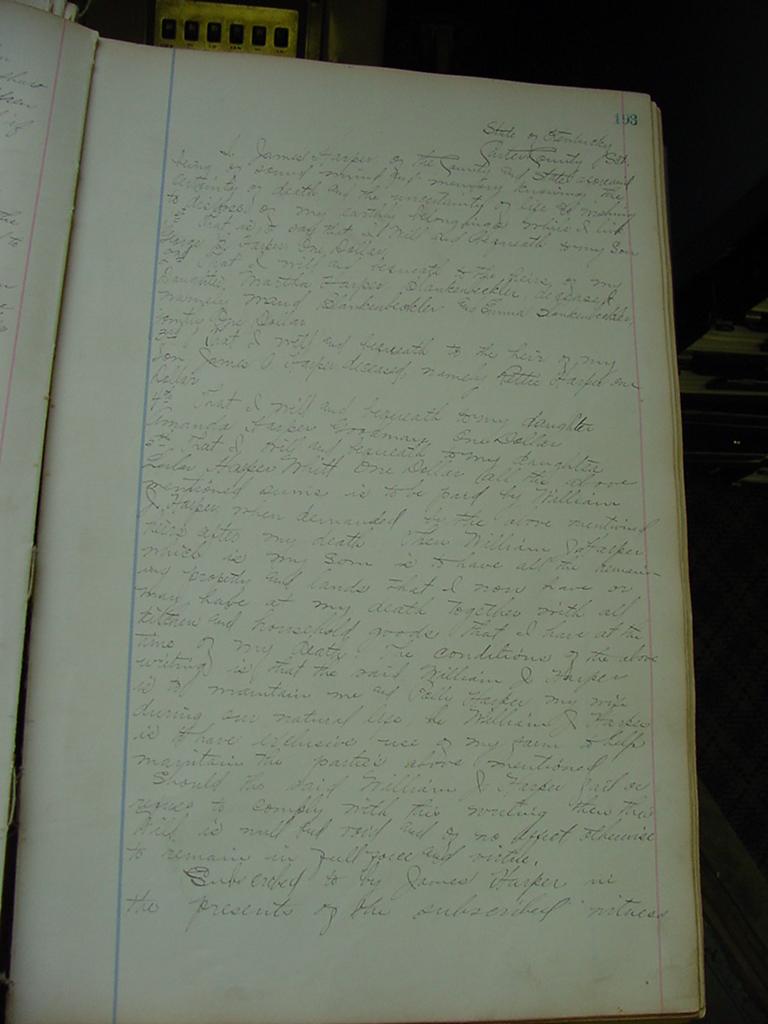 193
State of Kentucky
Carter County Sct.
I James Harper of the County and State aforesaid
being of sound mind and memory knowing the
certainty of death and the uncertainty of life and wishing
to dispose of my earthly belongings while I live
1st That is to say that I Will and Bequeath to my Son
George Harper One Dollar
2nd That I will and bequeath to the heirs of my
Daughter Martha Harper Blankenbeckler, deceased,
namely Maud Blankenbeckler and Emma Blankenbeckler
One Dollar
3rd That I will and bequeath to the heir of my
Son James Harper deceased, namely Harper one
Dollar
4th That I will and bequeath to my daughter
Amanda Harper One Dollar
5th That I Will and bequeath to my daughter
Harper Writt One Dollar all the above
mentioned sums is to be paid by William
J. Harper when demanded by the above mentioned
heirs after my death. Then William J Harper
which is my Son is to have all the remain-
ing property and lands that I now have or
may have at my death together with all
kitchen and household goods that I have at the
time of my death. The conditions of the above
writing is that the said William J Harper
is to maintain me and Harper my wife
during our natural life he William J Harper
is to have exclusive use of my farm to help
maintain the parties above mentioned
Should the said William J. Harper fail or
refuse to comply with this writing then this
Will is null and void and of no effect otherwise
to remain in full force and virtue.
Subscribed to by James Harper in
the presents of the subscribed witness